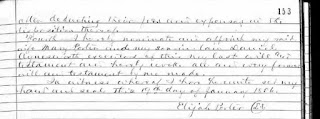 153
after deducting their fees and expenses in the
disposition thereof
Fourth I hereby nominate and appoint my said
wife Mary Porter and my son in law Daniel
executors of this my last will &
testament and hereby revoke all and every former
will and testament by me made
In witness whereof I have hereunto set my
hand and seal this 19th day of January 1806.
Elijah Porter